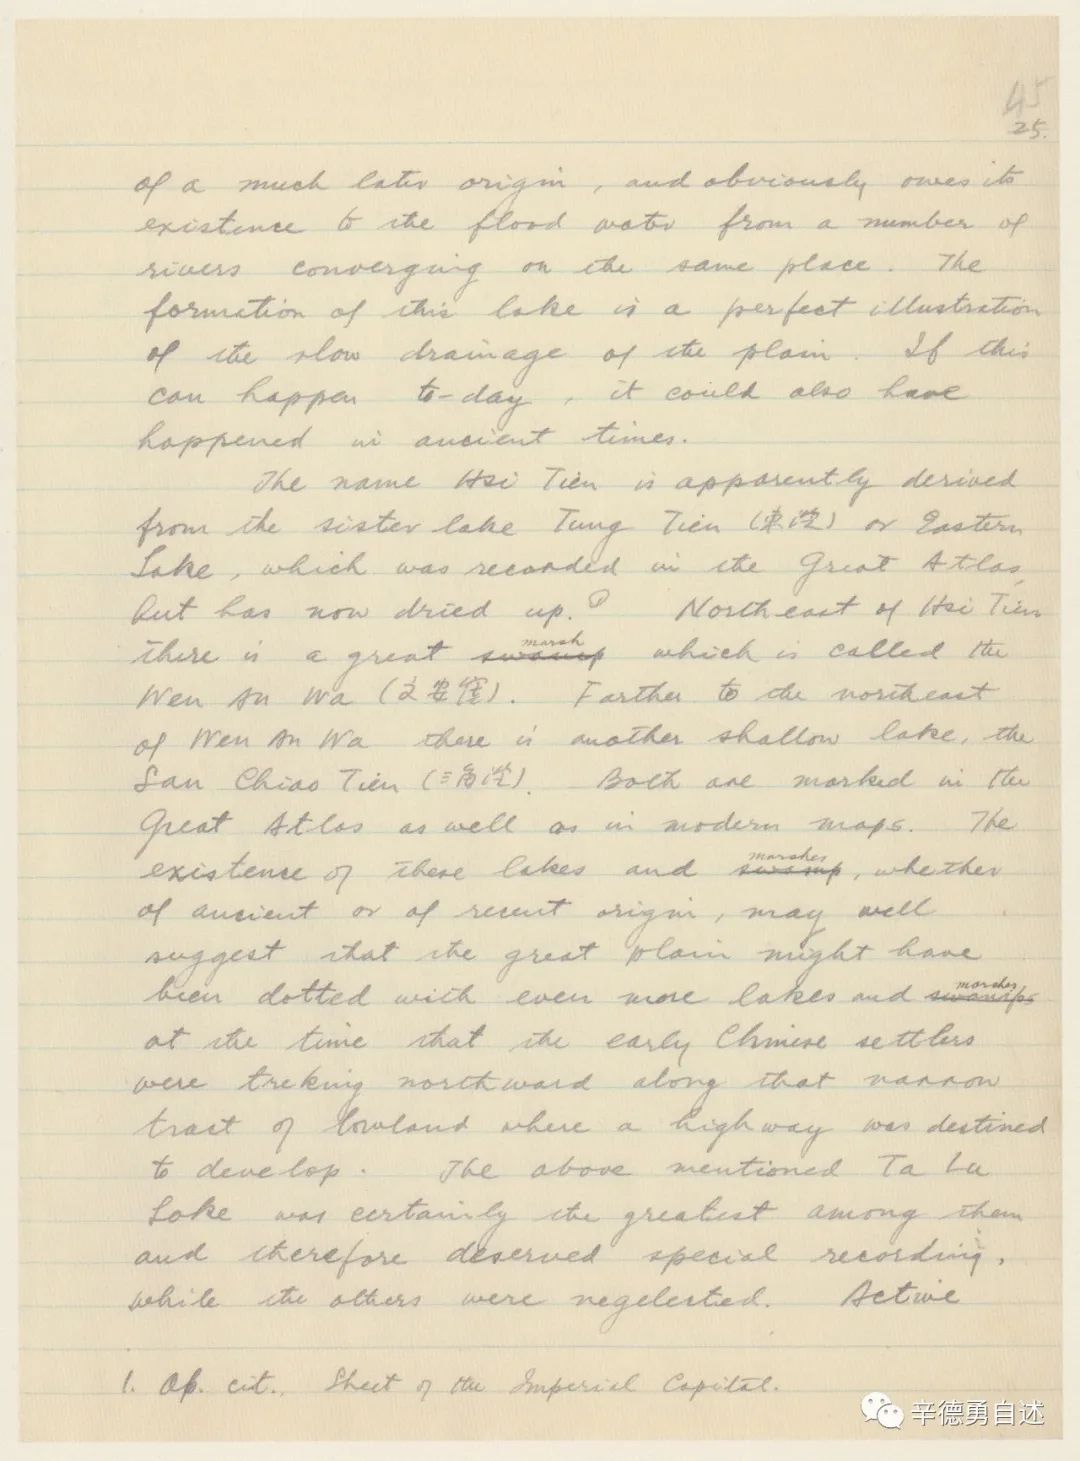 45
25.
of a much later origin, and obviously owes its
existence to the flood water from a number of
rivers converging on the same place. The
formation of this lake is a perfect illustration
of the slow drainage of the plain. If this
can happen to-day, it could also have
happened in ancient times.
The name Hsi Tien is apparently derived
from the sister lake Tung Tien (東淀) or Eastern
Lake, which was recorded in the Great Atlas,
but has now dried up. Northeast of Hsi Tien
marsh
there is a great swamp which is called the
Wen An Wa (文安窪). Farther to the northeast
of Wen An Wa there is another shallow lake, the
San Chiao Tien (三角淀). Both are marked in the
Great Atlas as well as in modern maps. The
marshes
existence of these lakes and swamp, whether
of ancient or of recent origin, may well
suggest that the great plain might have
marshes
been dotted with even more lakes and swamps
at the time that the early Chinese settlers
were treking northward along that narrow
tract of lowland where a highway was destined
to develop. The above mentioned Ta Lu
Lake was certainly the greatest among them
and therefore deserved special recording,
while the others were negelected. Active
1. Op. cit., Sheet of the Imperial Capital.
辛德勇自述